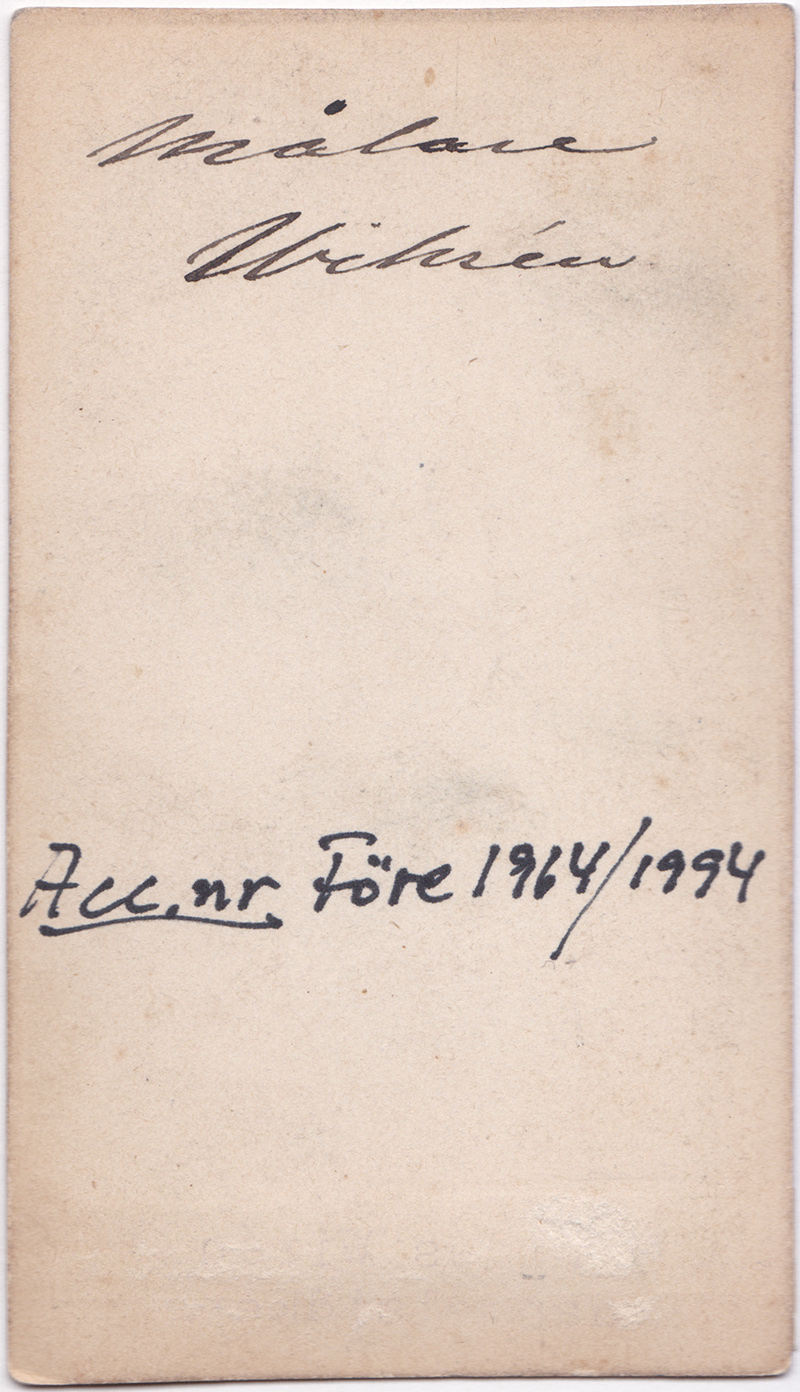 Målare
Wihsén
Acc.nr. Före 1964/1994